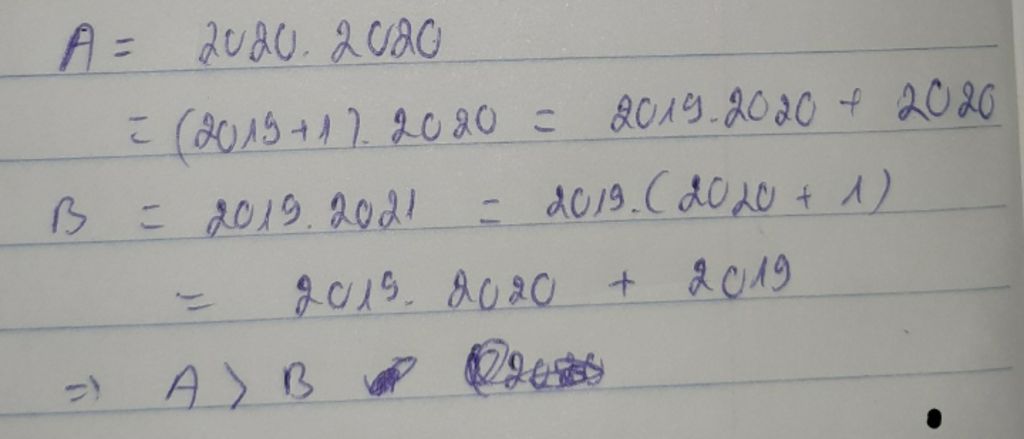 A = 2020. 2020
= (2019+1). 2020 = 2019.2020 + 2020
B = 2019. 2021 = 2019.(2020 + 1)
= 2019. 2020 + 2019
=> A > B